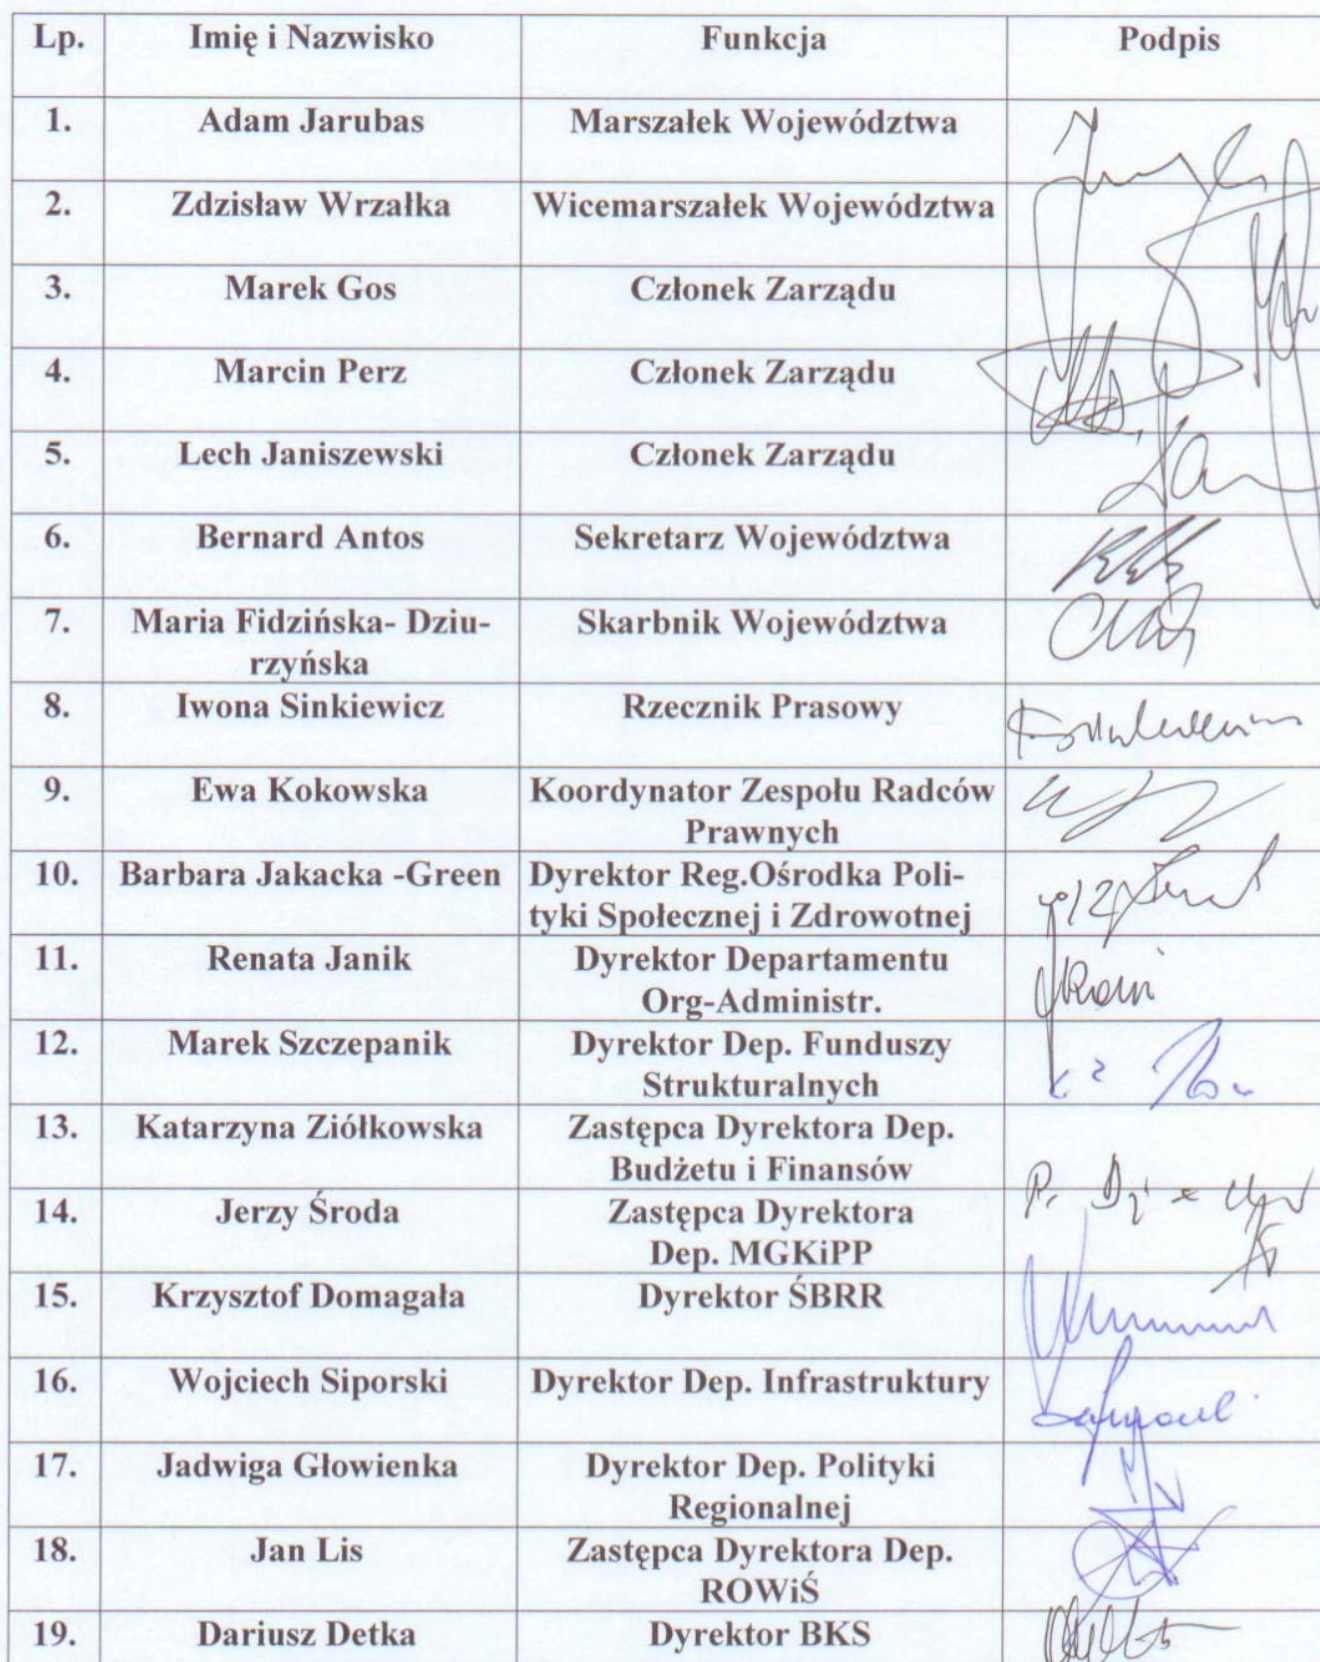 Lp. Imię i Nazwisko Funkcja Podpis
1. Adam Jarubas Marszałek Województwa
2. Zdzisław Wrzałka Wicemarszałek Województwa
3. Marek Gos Członek Zarządu
4. Marcin Perz Członek Zarządu
5. Lech Janiszewski Członek Zarządu
6. Bernard Antos Sekretarz Województwa
7. Maria Fidzińska- Dziu- Skarbnik Województwa
rzyńska
8. Iwona Sinkiewicz Rzecznik Prasowy
9. Ewa Kokowska Koordynator Zespołu Radców
Prawnych
10. Barbara Jakacka -Green Dyrektor Reg.Ośrodka Poli-
tyki Społecznej i Zdrowotnej
11. Renata Janik Dyrektor Departamentu
Org-Administr.
12. Marek Szczepanik Dyrektor Dep. Funduszy
Strukturalnych
13. Katarzyna Ziółkowska Zastępca Dyrektora Dep.
Budżetu i Finansów
14. Jerzy Środa Zastępca Dyrektora
Dep. MGKiPP
15. Krzysztof Domagała Dyrektor ŚBRR
16. Wojciech Siporski Dyrektor Dep. Infrastruktury
17. Jadwiga Głowienka Dyrektor Dep. Polityki
Regionalnej
18. Jan Lis Zastępca Dyrektora Dep.
ROWiŚ
19. Dariusz Detka Dyrektor BKS